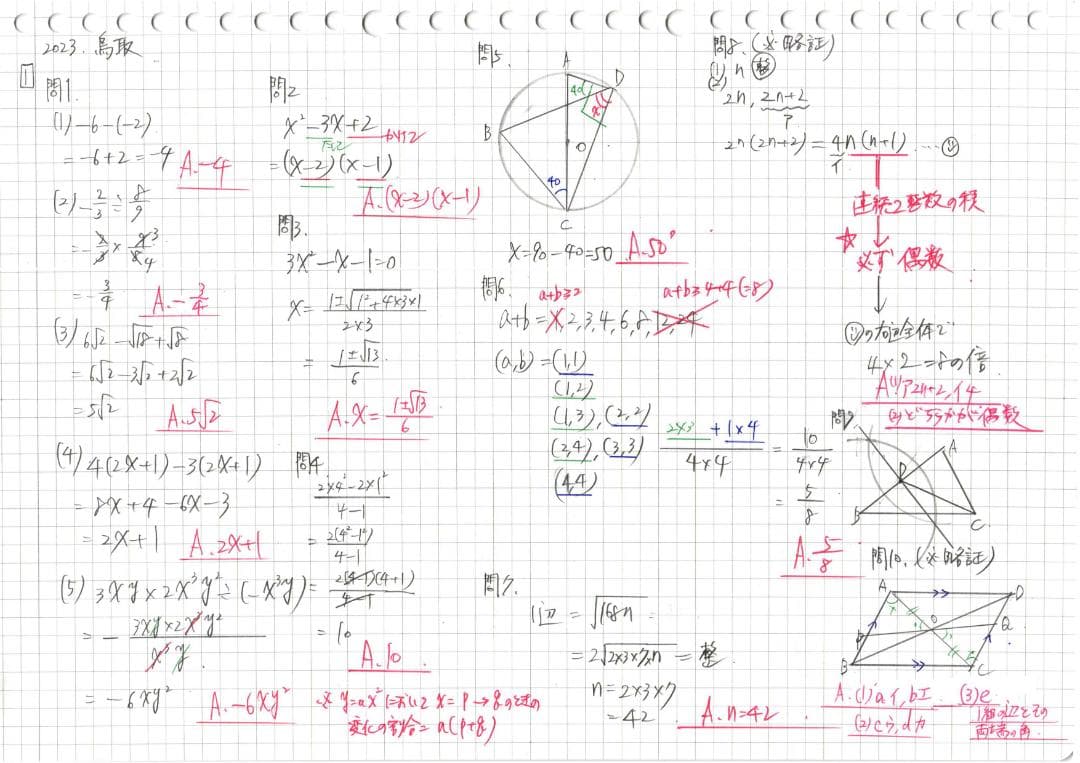 2023. 鳥取
1
問1.
(1) -6-(-2)
= -6+2 = -4
A. -4
(2) -2/3 ÷ 8/9
= -2/3 × 9/8
= -3/4
A. -3/4
(3) 6√2 - √18 + √8
= 6√2 - 3√2 + 2√2
= 5√2
A. 5√2
(4) 4(2x+1) - 3(2x+1)
= 8x+4-6x-3
= 2x+1
A. 2x+1
(5) 3xy × 2x³y² ÷ (-x³y)
= - 3xy×2x³y² / x³y
= -6xy²
A. -6xy²
問2
x²-3x+2
= (x-2)(x-1)
A. (x-2)(x-1)
問3.
3x²-x-1=0
x = 1±√(1²+4×3×1) / 2×3
= 1±√13 / 6
A. x = 1±√13 / 6
問4
2×4²-2×1² / 4-1
= 2(4²-1²) / 4-1
= 2(4-1)(4+1) / 4-1
= 10
A. 10
※ y=ax²において x=p→qのときの
変化の割合= a(p+q)
問5.
A
D
40
x
B
O
40
C
x=90-40=50
A. 50°
問6.
a+b≧2
a+b≦4+4(=8)
a+b = 1, 2, 3, 4, 6, 8, 12, 24
(a,b) = (1,1)
(1,2)
(1,3), (2,2)
(2,4), (3,3)
(4,4)
2×3+1×4 / 4×4 = 10 / 4×4
= 5/8
A. 5/8
問7.
1辺 = √168n
= 2√2×3×7×n = 整
n=2×3×7
= 42
A. n=42
問8. (※略証)
(1) n 整
(2)
2n, 2n+2
ア
2n(2n+2) = 4n(n+1) … ㋒
イ
連続2整数の積
☆
必ず偶数
㋒の右辺全体で
4×2=8の倍
A. (1)ア2n+2, イ4
(2)どちらかが偶数
問9
A
D
B
C
問10. (※略証)
A
D
P
O
Q
B
C
A. (1) aイ, bエ
(2) cう, dカ
(3) e
1組の辺とその
両端の角.